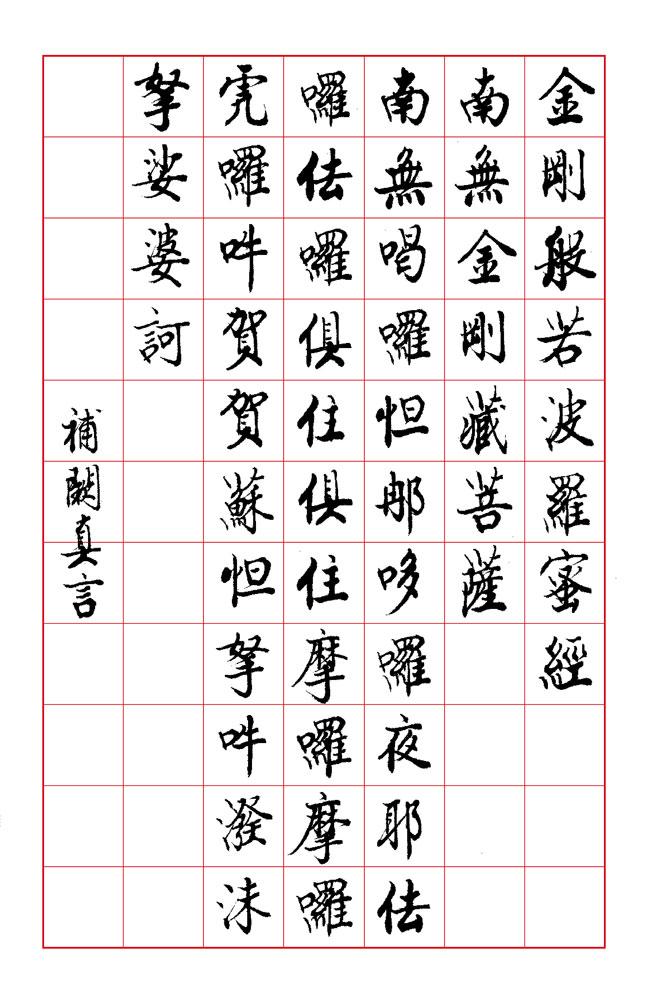 金剛般若波羅蜜經
南無金剛藏菩薩
南無喝囉怛那哆囉夜耶佉
囉佉囉俱住俱住摩囉摩囉
虎囉吽賀賀蘇怛拏吽潑沫
拏娑婆訶
補闕真言